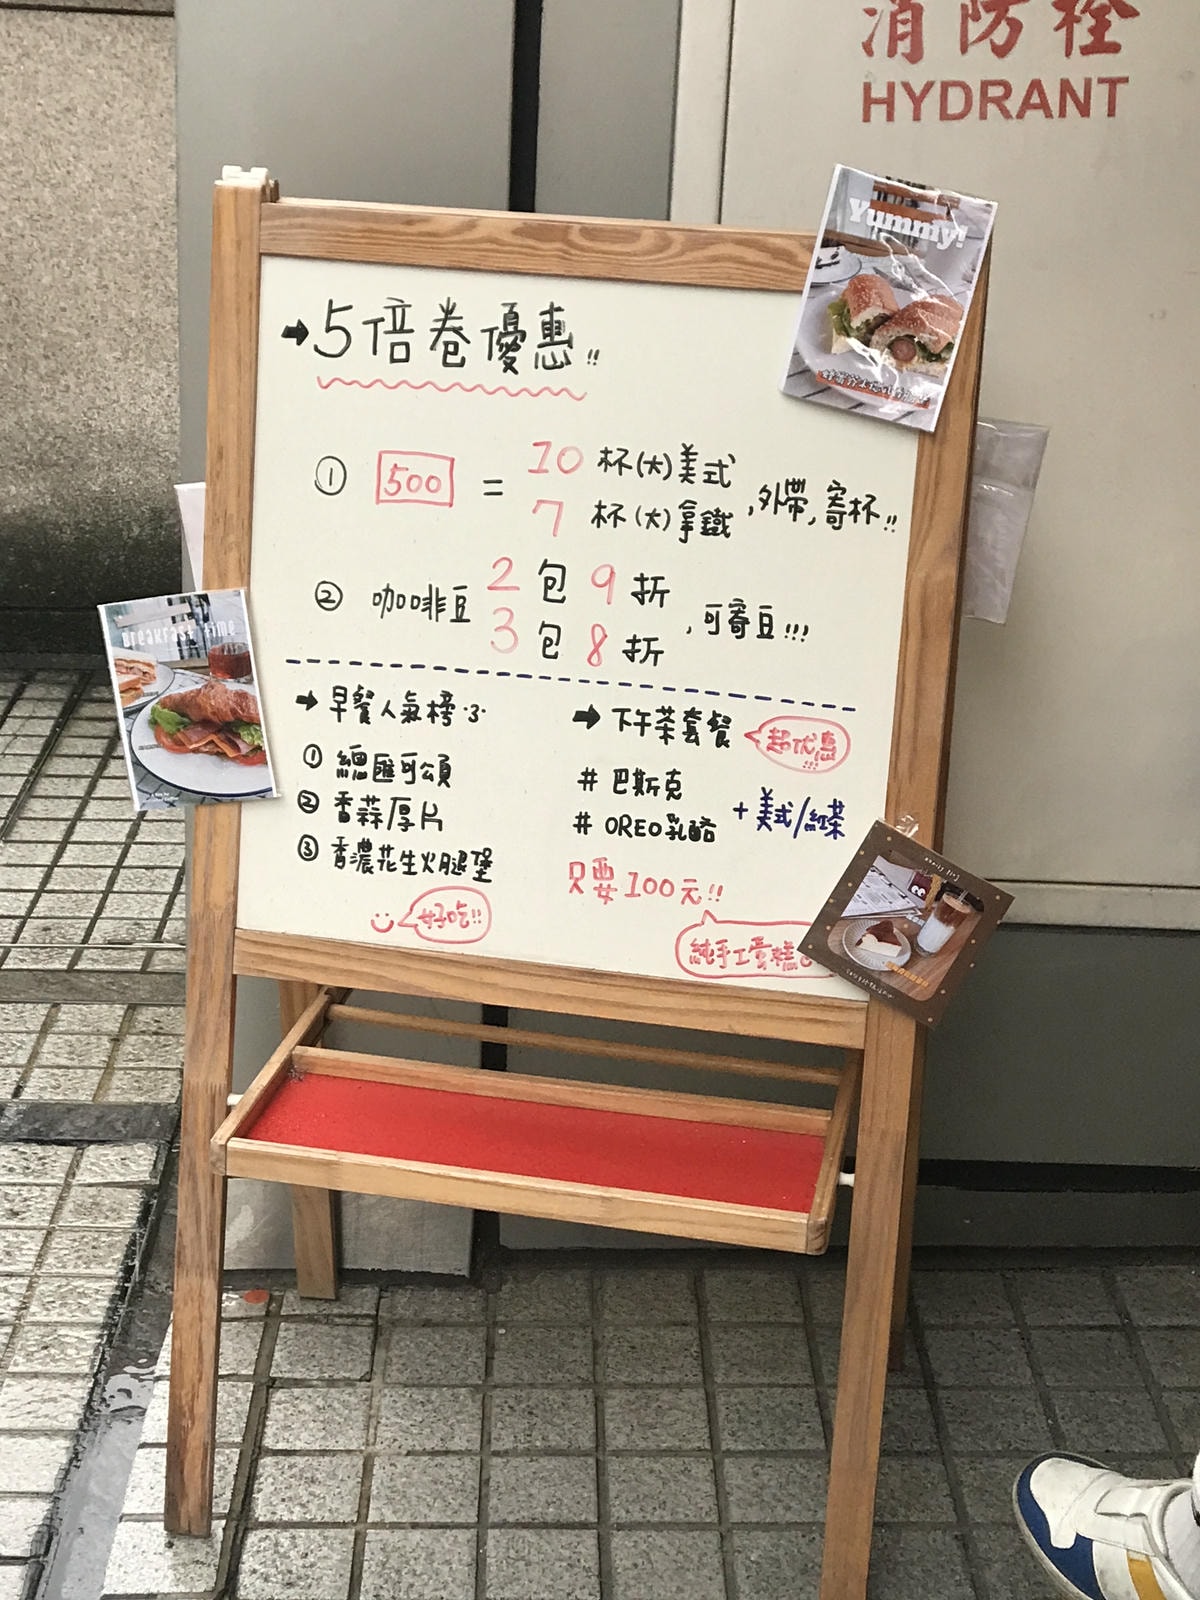 消防栓
HYDRANT
Yummy!
➡5倍卷優惠!!
① 500 = 10 杯(大)美式
7 杯(大)拿鐵 ,外帶,寄杯!!
② 咖啡豆 2 包 9 折
3 包 8 折 ,可寄豆!!!
Breakfast time
➡早餐人氣榜·3·
① 總匯可頌
② 香蒜厚片
③ 香濃花生火腿堡
好吃!!
➡下午茶套餐 超优惠!!!
# 巴斯克
# OREO乳酪 +美式/紅茶
只要100元!!
純手工蛋糕